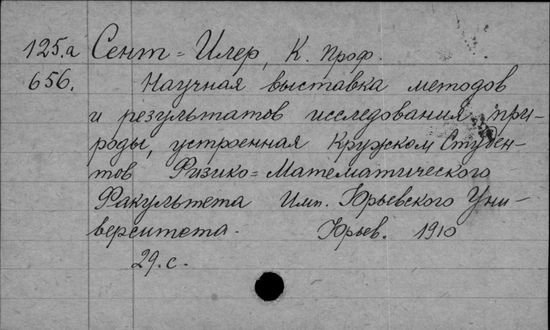 125.a Сент-Илер, К. проф.
656. Научная выставка методов
и результатов исследования при-
роды, устроенная Кружком Студен-
тов Физико-Математического
Факультета Имп. Юрьевского Уни-
верситета. Юрьев. 1910
29.с.